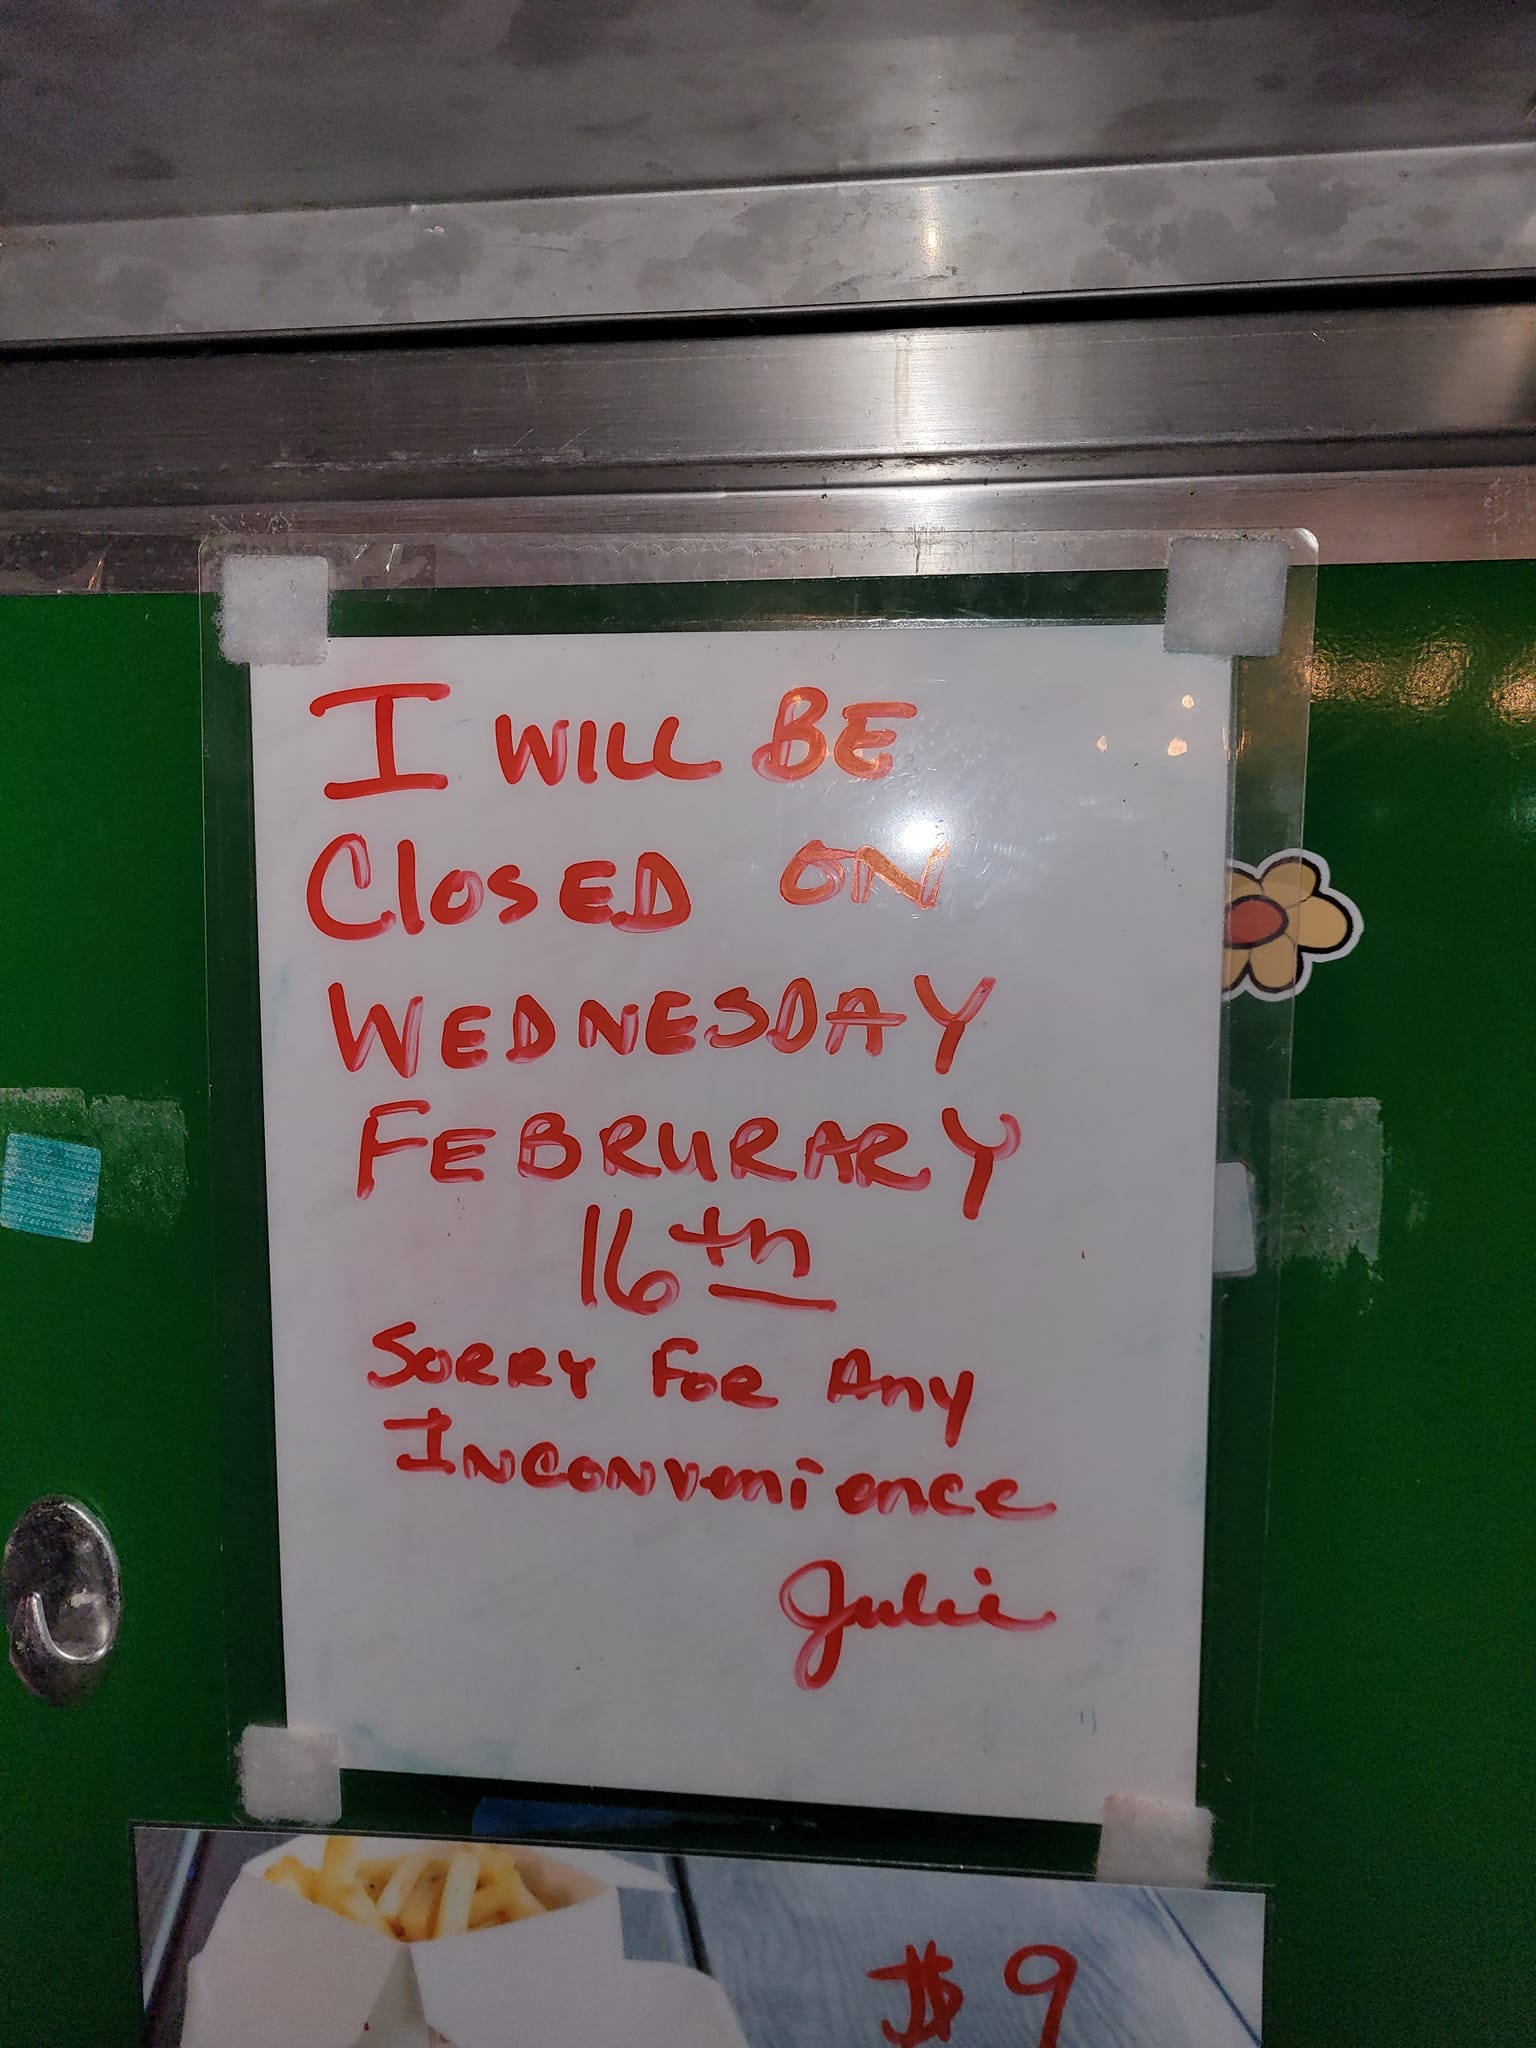 I WILL BE
CLOSED ON
WEDNESDAY
FEBRURARY
16th
SORRY FOR Any
INCONvenience
Julie
$9